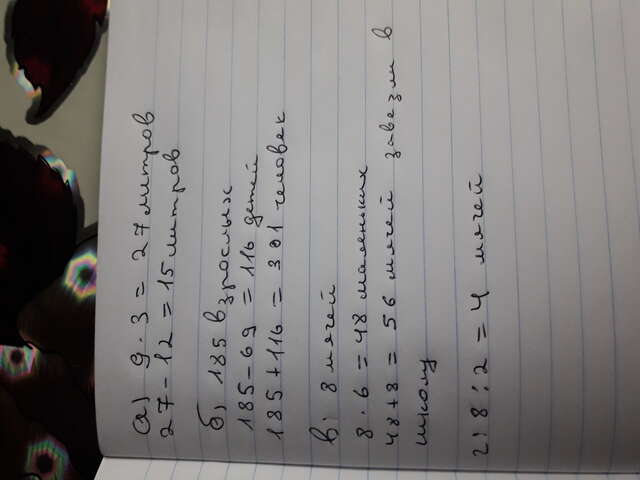 а) 9 · 3 = 27 литров
27 - 12 = 15 литров
б) 185 взрослых
185 - 69 = 116 детей
185 + 116 = 301 человек
в: 8 мячей
8 · 6 = 48 маленьких
48 + 8 = 56 мячей завезли в
школу
г: 8 : 2 = 4 мячей